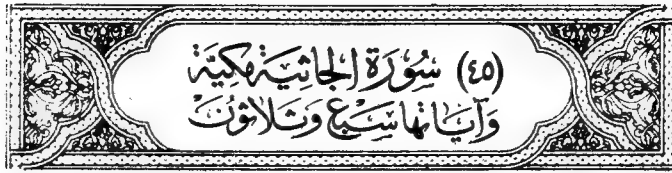 (٤٥) سُورَة الجَاثِيَة مَكِيَّة
وَآيَاتهَا سَبع وَثَلَاثُونَ